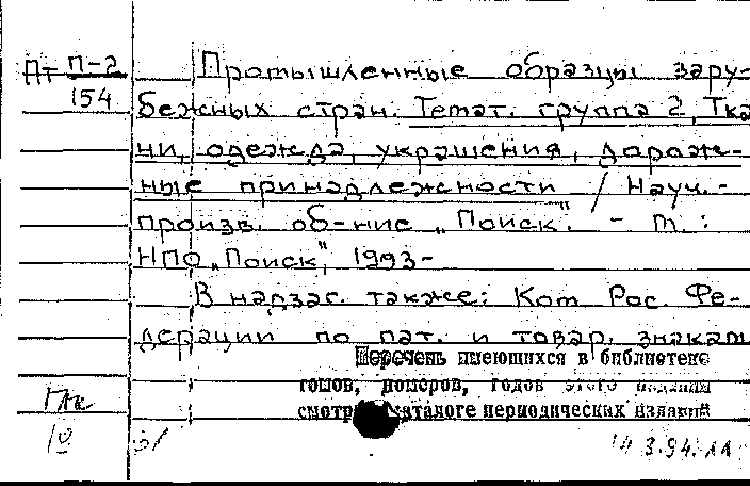 Пт П-2
154
Промышленные образцы зару-
бежных стран. Темат. группа 2, Тка
ни, одежда, украшения, дорож-
ные принадлежности / Науч.-
произв. об-ние „Поиск". - М. :
НПО „Поиск", 1993-
В надзаг. также: Ком Рос. Фе-
дерации по пат. и товар. знакам
Перечень имеющихся в библиотеке
томов, номеров, годов этого издания
смотр каталоге периодических изданий
3.94.